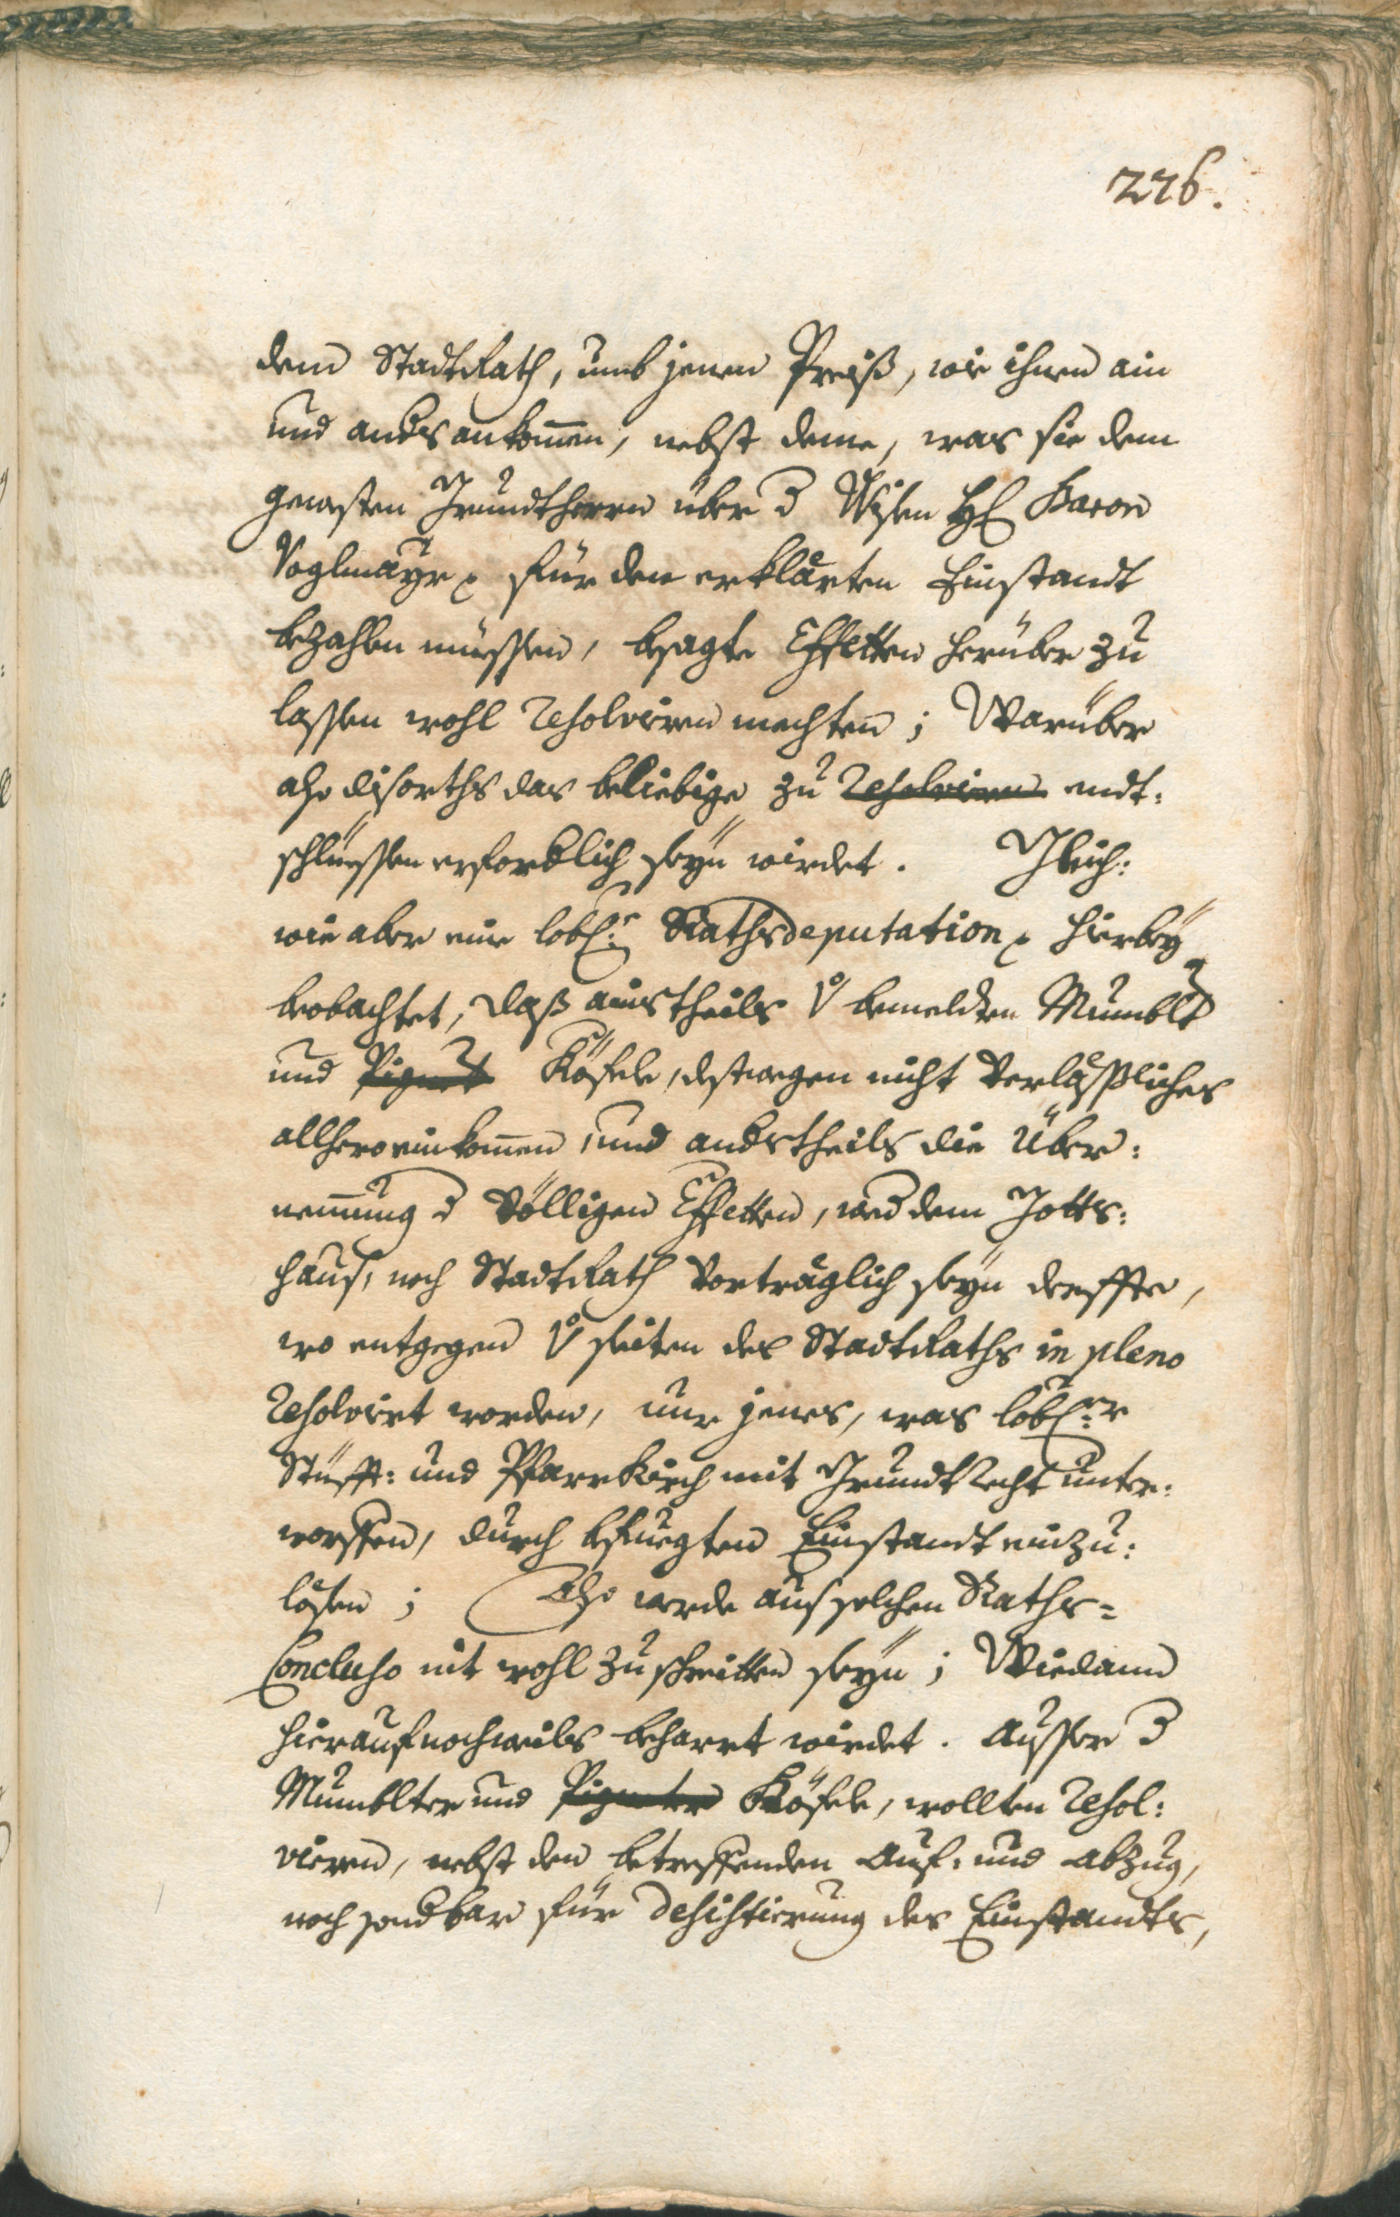 226.
dem StadtRath, umb jenen Preiß, wie ihnen ain
und anders ankommen, nebst deme, was sie dem
gewesten Grundtherrn über d Wisen H: Baron
Voglmayr, für den erklärten Einstandt
bezahlen müessen, besagte Effetten herüber zu
lassen wohl resolviren mechten; Warüber
also diserths das beliebige zu resolviren endt:
schlüessen erforderlich seyn wirdet. Gleich:
wie aber eine lobl: Rathsdeputation, hierbey
beobachtet, daß ainstheils v bemeldten Mumblt
und Käsele, destwegen nicht verläßliches
allhero einkommen, und anderstheils die Über:
nemmung d völligen Effetten, wed dem Gotts:
hauß, noch StadtRath vorträglich seyn derffte,
wo entgegen v seiten des StadtRaths in pleno
resolvirt worden, nur jenes, was lobl:r
Stüfft: und Pfarrkirch mit GrundtRecht unter:
worffen, durch befuegten Einstandt einzu:
lösen; Also werde auf solchen Raths=
Concluso nit wohl zu schreitten seyn; Wiedann
hierauf nochmals beharrt wirdet. Ausser d
Mumblter und Käsele, wollten resol:
vieren, nebst den betreffenden Auf: und Abzug,
noch sondbar für desistierung des Einstandts,